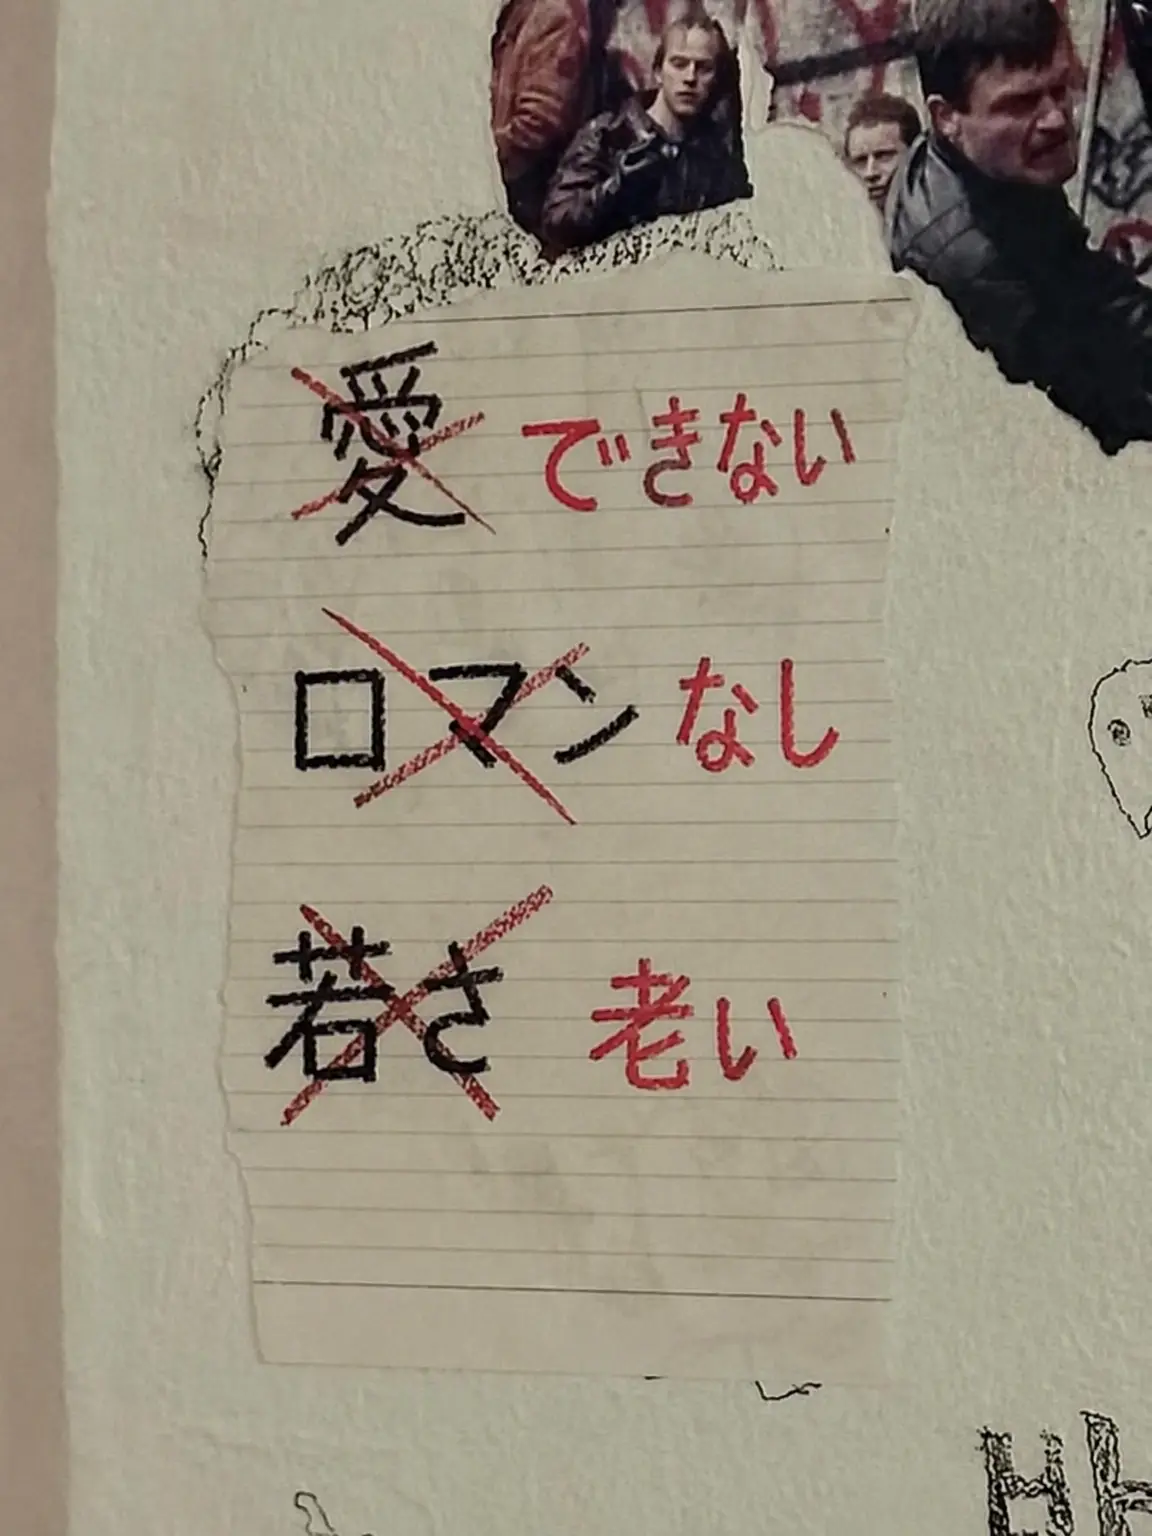 愛 できない
ロマン なし
若さ 老い